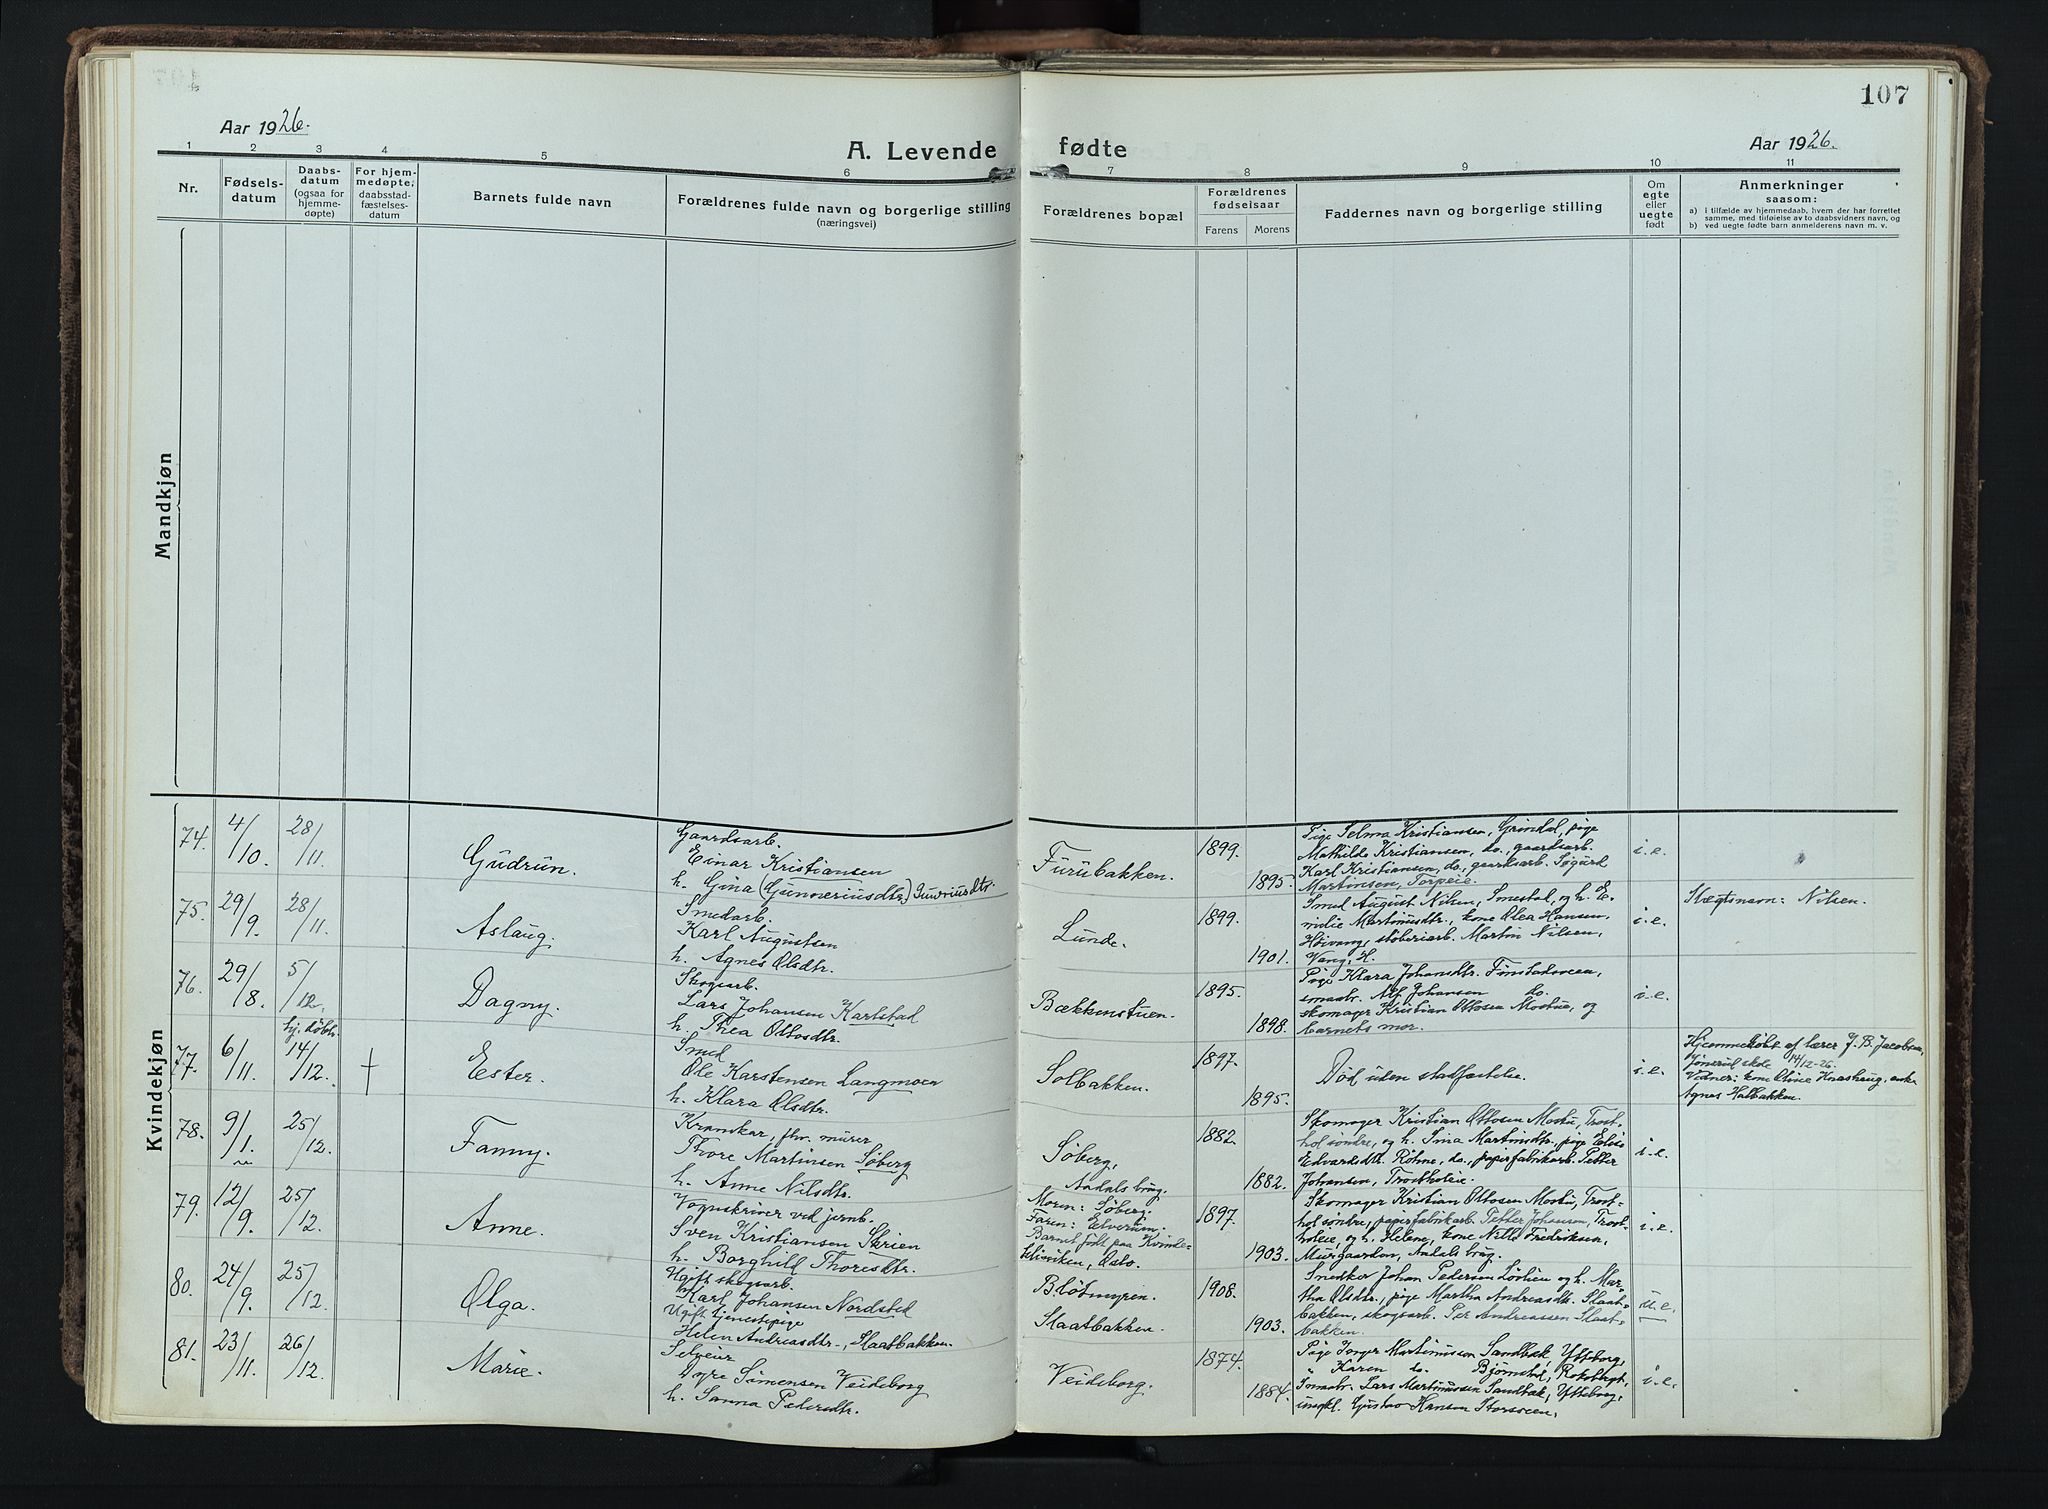 107
Aar 1926.
A. Levende fødte
Aar 1926.
1 2 3 4 5 6 7 8 9 10 11
Nr.
Fødsels-
datum
Daabs-
datum
(ogsaa for
hjemme-
døpte)
For hjem-
medøpte,
daabsstad-
fæstelses-
datum
Barnets fulde navn
Forældrenes fulde navn og borgerlige stilling
(næringsvei)
Forældrenes bopæl
Forældrenes
fødselsaar
Farens
Morens
Faddernes navn og borgerlige stilling
Om
egte
eller
uegte
født
Anmerkninger
saasom:
a) i tilfælde av hjemmedaab, hvem der har forrettet
samme, med tilføielse av to daabsvidners navn, og
b) ved uegte fødte barn anmelderens navn m. v.
Mandkjøn
Kvindekjøn
74. 4/10 28/11 Gudrun.
Gaardsarb.
Einar Kristiansen
h. Gina (Gunneriusdtr.) Gudriusdtr.
Furubakken.
1899.
1895.
Pige Selma Kristiansen, Grindal, pige
Mathilde Kristiansen, do., gaardsarb.
Karl Kristiansen, do., gaardsarb. Sigurd
Martinsen, Torpeie.
i.e.
75. 29/9. 28/11 Aslaug.
Smedarb.
Karl Augustsen
h. Agnes Olsdtr.
Lunde.
1899.
1901.
Smed August Nilsen, Smestad, og h. E-
milie Martinusdtr., kone Olea Hansen,
Høivang, støberiarb. Martin Nilsen,
Vang, H.
i.e.
Slegtsnavn: Nilsen.
76. 29/8. 5/12. Dagny.
Skogsarb.
Lars Johansen Karlstad
h. Thea Ottosdtr.
Bækkenstuen.
1895.
1898.
Pige Klara Johansdtr. Finstadsveen,
smaabr. Alf Johansen do.
skomager Kristian Ottosen Mostue, og
barnets mor.
i.e.
77. 6/11. hj. døbt 14/12. † Ester.
Smed
Ole Karstensen Langmoen
h. Klara Olsdtr.
Solbakken.
1897.
1895.
Død uden stadfæstelse.
i.e.
Hjemmedøbt af lærer J. B. Jacobsen,
skole 14/12-26.
Vidner: kone Knashaug, enke
Agnes Halbakken.
78. 9/1. 25/12. Fanny.
Kramkar, fhv. murer
Thore Martinsen Søberg
h. Anne Nilsdtr.
Søberg,
Aadals brug.
1882.
1882.
Skomager Kristian Ottosen Mostu, Trost-
hol søndre, og h. Sina Martinsdtr., pige Elise
Edvardsdtr. Röhne, do., papirfabrikarb. Petter
Johansen, Trostholeie.
i.e.
79. 12/9. 25/12. Anne.
Vognskriver ved jernb.
Sven Kristiansen Skrien
h. Borghild Thoresdtr.
Moren: Søberg.
Faren: Elverum.
Barnet født paa Kvinde-
klinikken, Oslo.
1897.
1903.
Skomager Kristian Ottosen Mostu, Trost-
hol søndre, papirfabrikarb. Petter Johansen, Trost-
holeie, og h. Helene, kone Nille Fredriksen,
Murgaarden, Aadals brug.
i.e.
80. 24/9. 25/12. Olga.
Ugift skogsarb.
Karl Johansen Nordstad
Ugift tjenestepige
Helen Andreasdtr., Slaatbakken.
Bløtmyren.
Slaatbakken.
1908.
1903.
Snedker Johan Pedersen Løvlien og h. Mar-
tha Olsdtr., pige Martha Andreasdtr. Slaat-
bakken, skogsarb. Per Andreassen Slaat-
bakken.
u.e.
81. 23/11. 26/12. Marie.
Selveier
Syver Simensen Veideborg
h. Sanna Pedersdtr.
Veideborg.
1874.
1884.
Pige Inger Martinussen Sandbæk, Ytteborg,
Karen do. Bjørnstad, Rokoberget,
smaabr. Lars Martinussen Sandbæk, Ytteborg,
ungkl. Gustav Hansen Storsveen,
i.e.